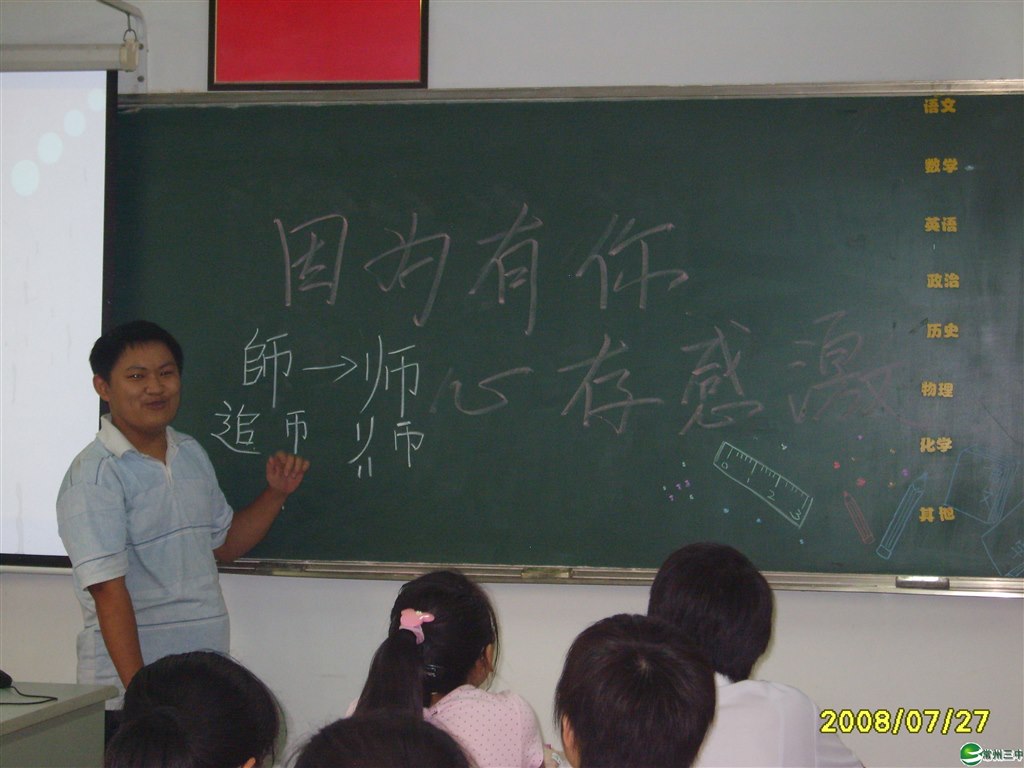 因为有你
心存感激
師→师
追 帀 师
语文
数学
英语
政治
历史
物理
化学
其他
0 1 2 3
2008/07/27
常州三中